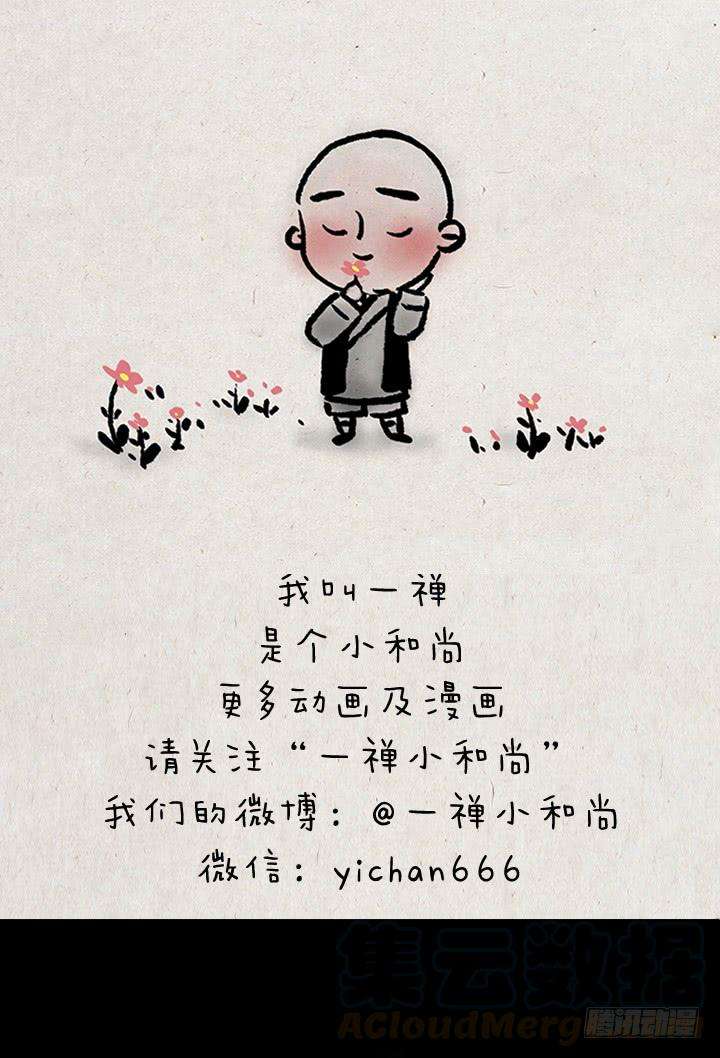 我叫一禅
是个小和尚
更多动画及漫画
请关注“一禅小和尚”
我们的微博：@一禅小和尚
微信：yichan666
集云数据
ACloudMerg
腾讯动漫